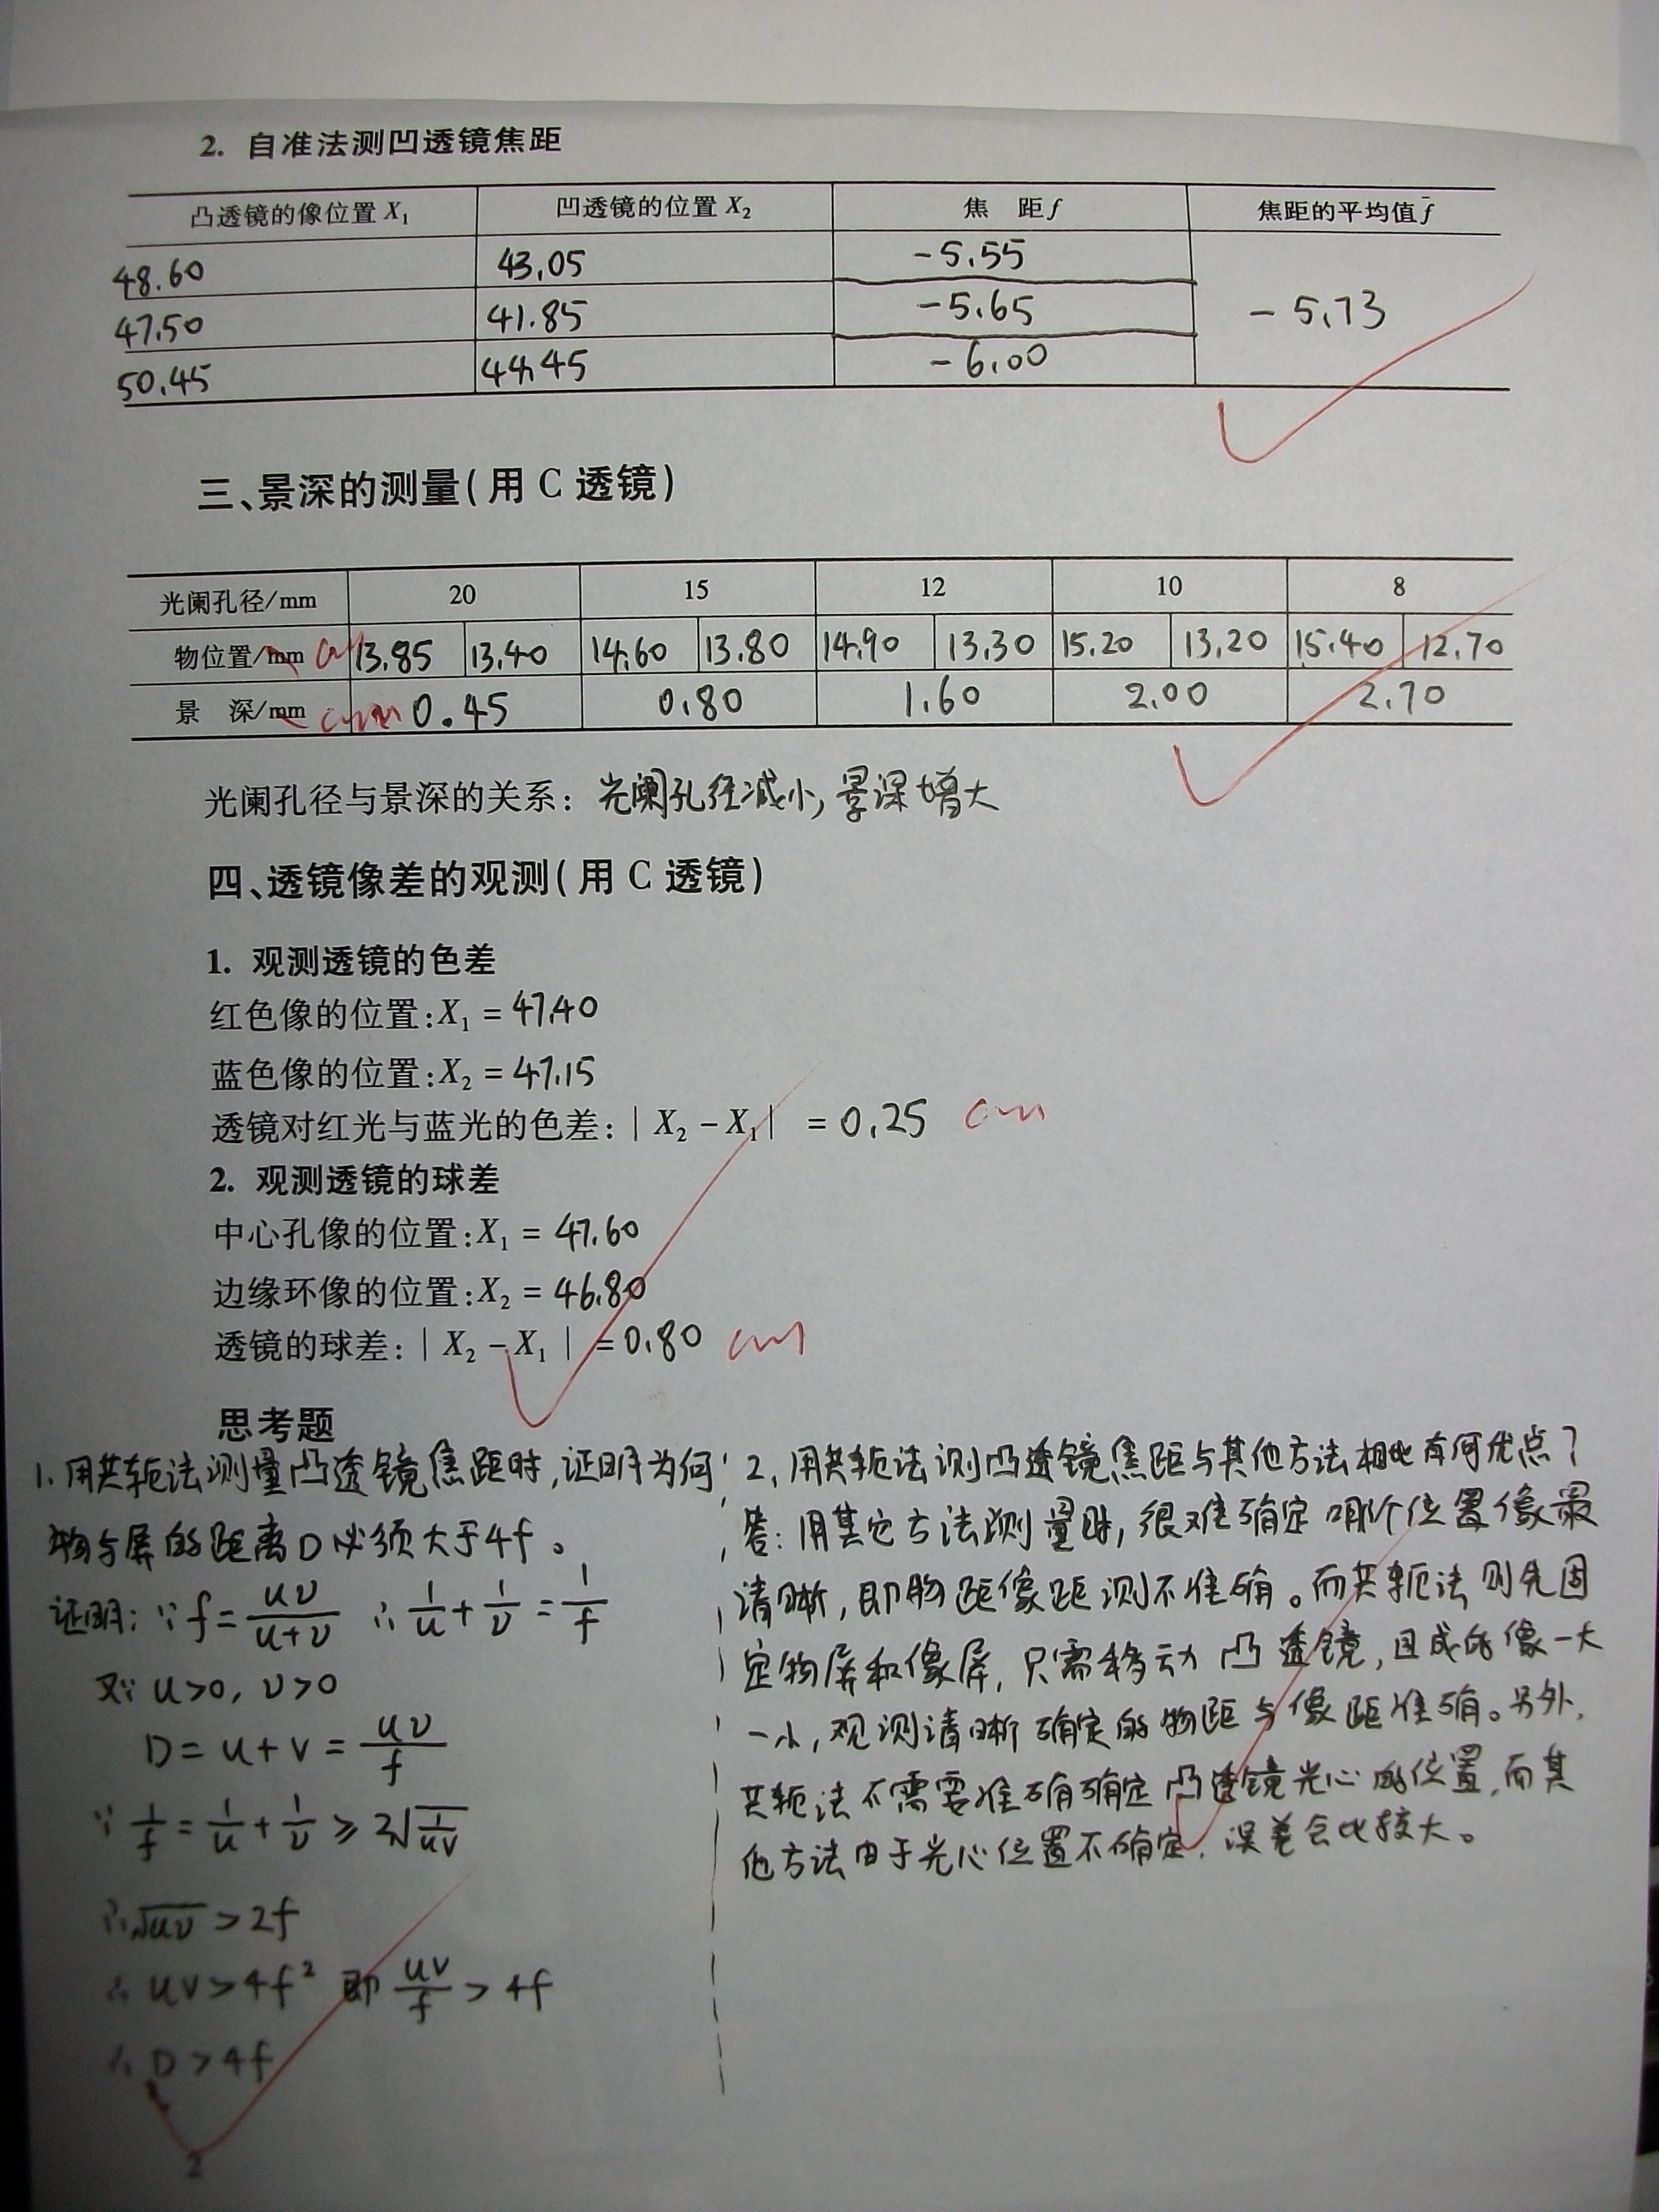 2. 自准法测凹透镜焦距
凸透镜的像位置 X₁ 凹透镜的位置 X₂ 焦 距 f 焦距的平均值 f̄
48.60 43.05 -5.55
47.50 41.85 -5.65 -5.73
50.45 44.45 -6.00
三、景深的测量(用 C 透镜)
光阑孔径/mm 20 15 12 10 8
物位置/mm cm 13.85 13.40 14.60 13.80 14.90 13.30 15.20 13.20 15.40 12.70
景 深/mm cm 0.45 0.80 1.60 2.00 2.70
光阑孔径与景深的关系: 光阑孔径减小, 景深增大
四、透镜像差的观测(用 C 透镜)
1. 观测透镜的色差
红色像的位置:X₁ = 47.40
蓝色像的位置:X₂ = 47.15
透镜对红光与蓝光的色差:| X₂ - X₁ | = 0.25 cm
2. 观测透镜的球差
中心孔像的位置:X₁ = 47.60
边缘环像的位置:X₂ = 46.80
透镜的球差:| X₂ - X₁ | = 0.80 cm
思考题
1. 用共轭法测量凸透镜焦距时, 证明为何
物与屏的距离D必须大于4f。
证明: ∵ f = uv/(u+v) ∴ 1/u + 1/v = 1/f
又∵ u>0, v>0
D = u + v = uv/f
∵ 1/f = 1/u + 1/v ≥ 2√(1/uv)
∴ √uv > 2f
∴ uv > 4f² 即 uv/f > 4f
∴ D > 4f
2. 用共轭法测凸透镜焦距与其他方法相比有何优点?
答: 用其它方法测量时, 很难确定哪个位置像最
清晰, 即物距像距测不准确。而共轭法则先固
定物屏和像屏, 只需移动凸透镜, 且成的像一大
一小, 观测清晰确定的物距与像距准确。另外,
共轭法不需要准确确定凸透镜光心的位置, 而其
他方法由于光心位置不确定, 误差会比较大。
2